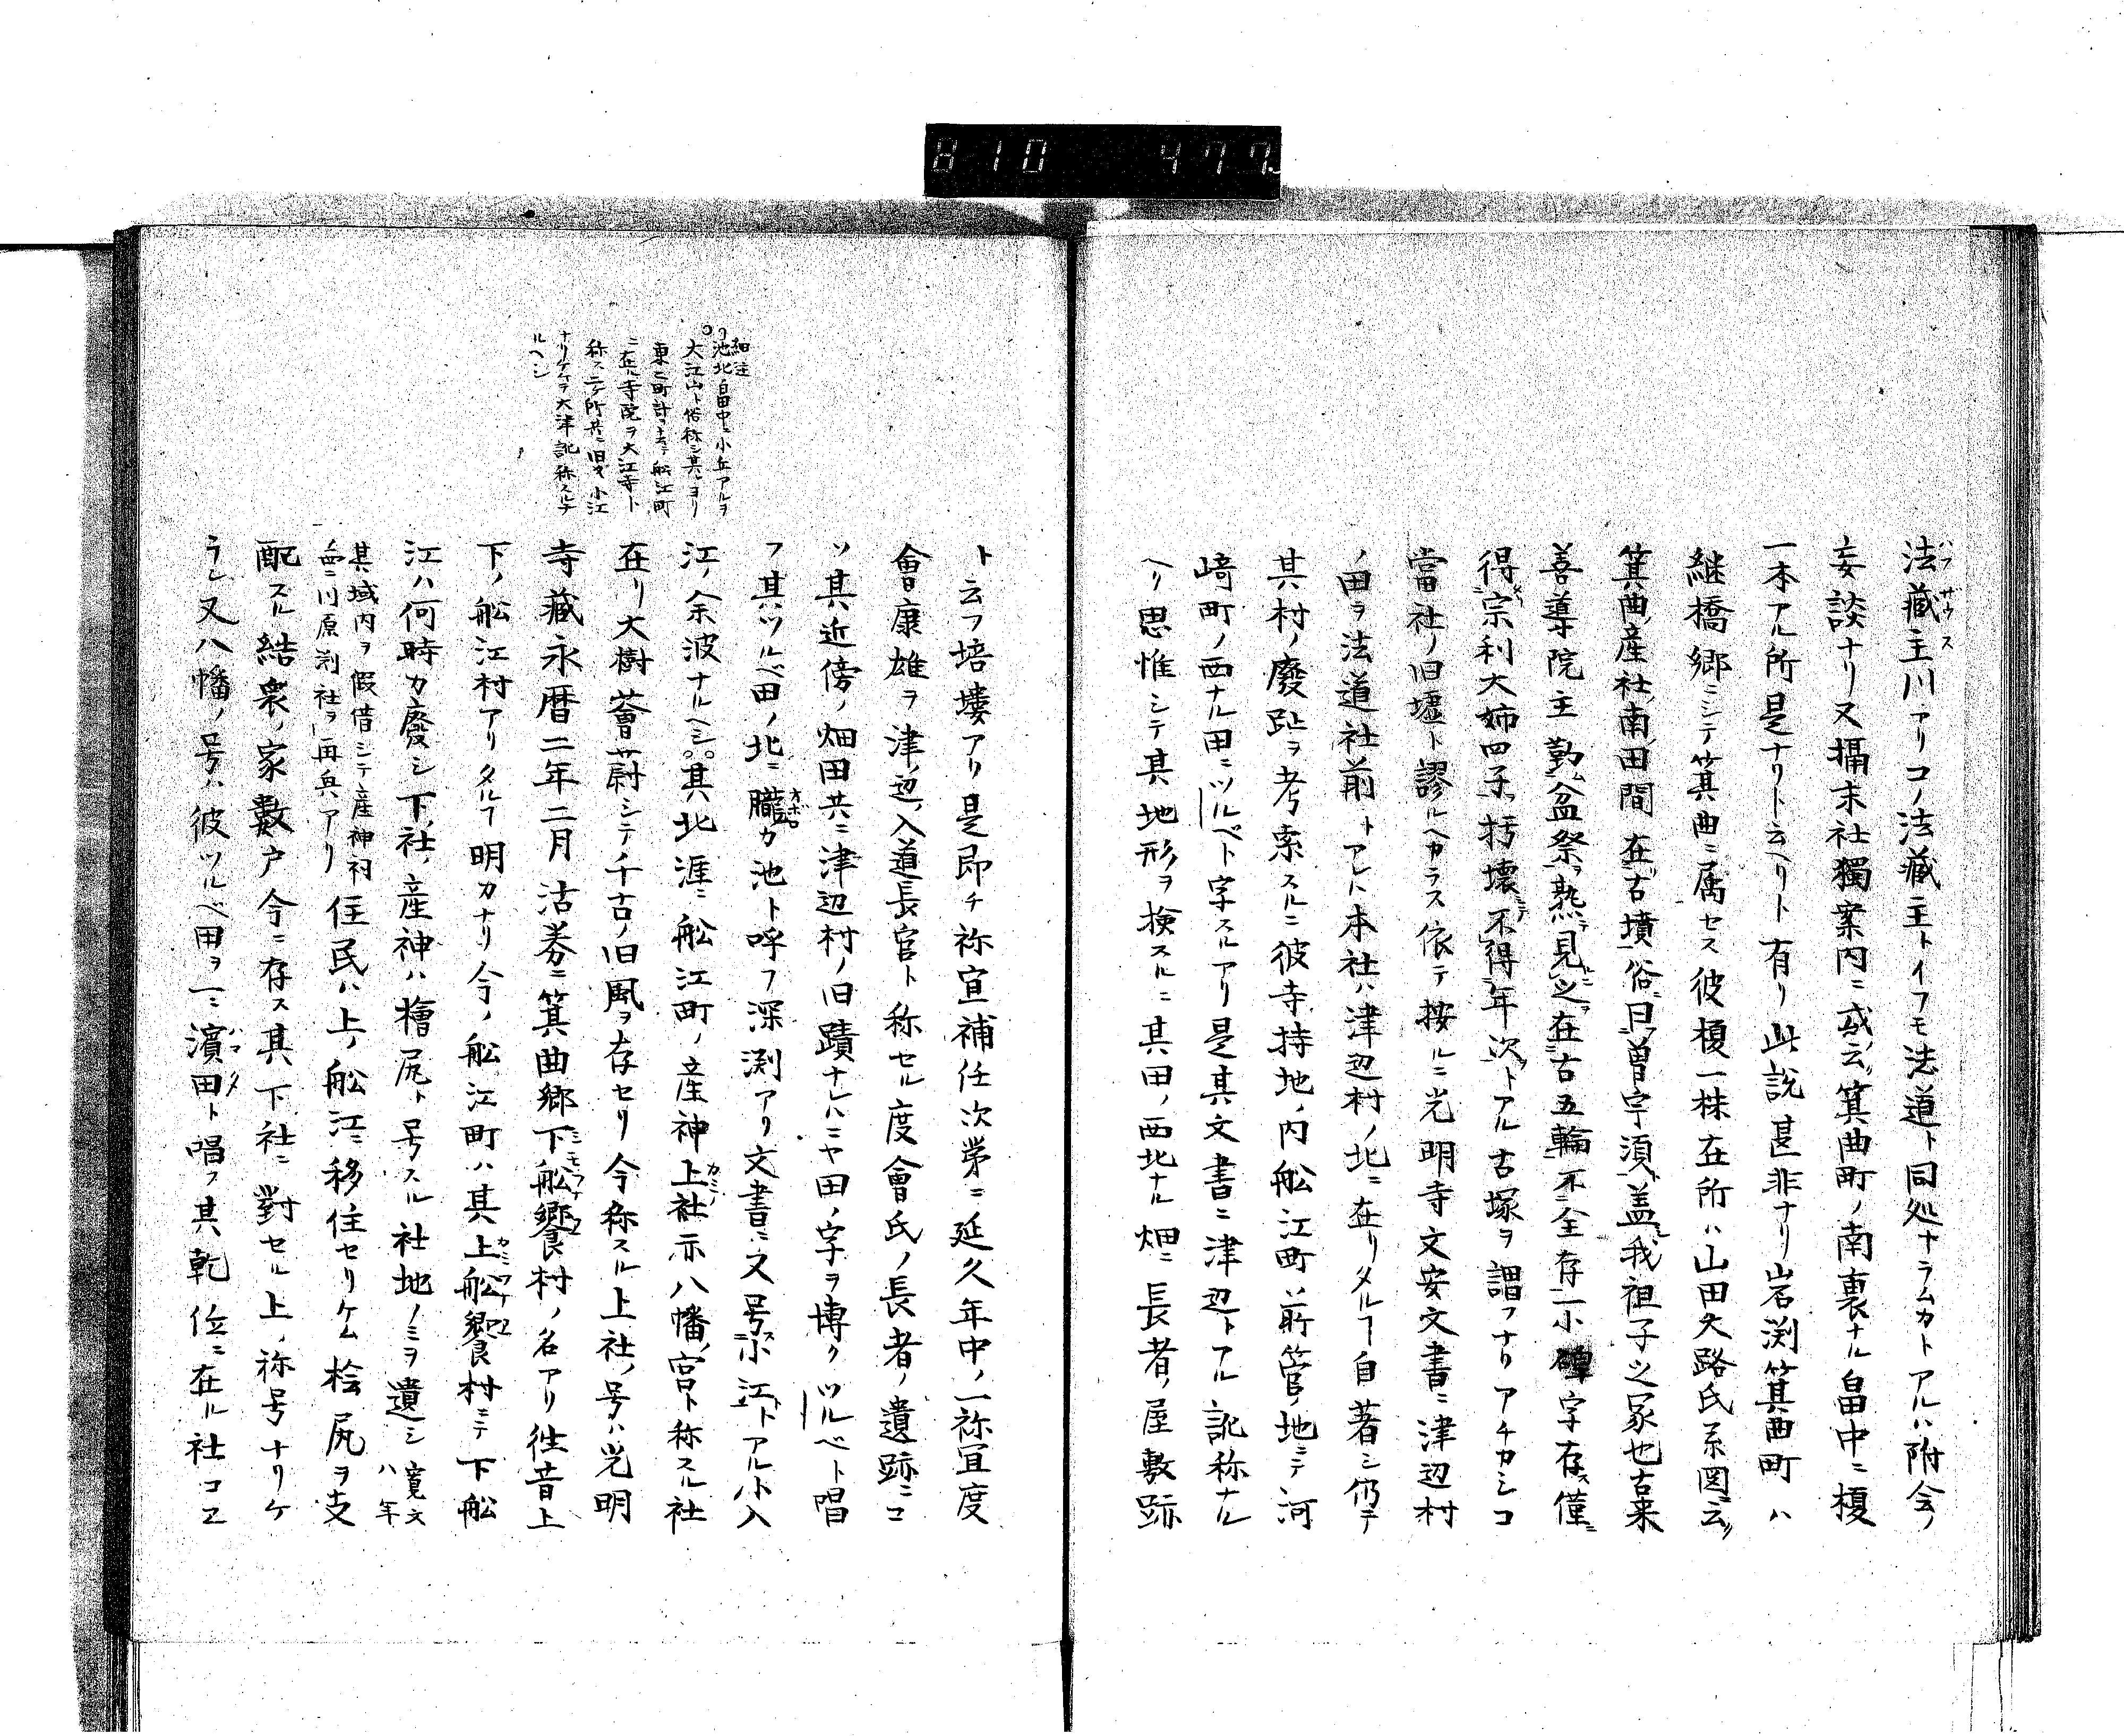 810 477
法藏主川アリコノ法藏主トイフモ法道ト同処ナラムカトアルハ附会ノ
妄談ナリ又攝末社獨案内ニ或云箕曲町ノ南裏ナル畠中ニ榎
一本アル所是ナリト云ヘリト有リ此説甚非ナリ岩渕箕曲町ハ
継橋郷ニシテ箕曲ニ属セス彼榎一株在所ハ山田大路氏系図ニ云
箕曲産社南田間在古墳俗曰曽宇須盖我祖子之冢也古来
善導院主勤盆祭熟見之在古五輪不全存一小碑字存僅
得宗利大姉四子朽壊不得年次トアル古塚ヲ謂フナリアチカシコ
當社ノ旧墟ト謬ルヘカラス依テ按ルニ光明寺文安文書ニ津辺村
ノ田ヲ法道社前トアレハ本社ハ津辺村ノ北ニ在リタルヿ自著シ仍テ
其村ノ廢趾ヲ考索スルニ彼寺持地ノ内船江町ノ所管ノ地ニテ河
﨑町ノ西ナル田ニツルベト字スルアリ是其文書ニ津辺トアル訛称ナル
ヘリ思惟シテ其地形ヲ検スルニ其田ノ西北ナル畑ニ長者ノ屋敷跡
ト云フ培塿アリ是即チ祢宜補任次第ニ延久年中ノ一祢宜度
會康雄ヲ津ノ辺ノ入道長官ト称セル度會氏ノ長者ノ遺跡ニコ
ソ其近傍ノ畑田共ニ津辺村ノ旧蹟ナレハニヤ田ノ字ヲ博クツルベト唱
フ其ツルベ田ノ北ニ朧カ池ト呼フ深渕アリ文書ニ又号ス小江トアル小入
江ノ余波ナルヘシ。其北涯ニ船江町ノ産神上社示八幡ノ宮ト称スル社
在リ大樹薈蔚シテ千古ノ旧風ヲ存セリ今称スル上社ノ号ハ光明
寺藏永暦二年二月沽券ニ箕曲郷下船饗村ノ名アリ往昔上
下ノ船江村アリタルヿ明カナリ今ノ船江町ハ其上船饗村ニテ下船
江ハ何時カ廢シ下ノ社ノ産神ハ檜尻ト号スル社地ノミヲ遺シ寛文八年
其域内ヲ假借シテ産神祠ノ西ニ川原渕社ヲ再興アリ住民ハ上ノ船江ニ移住セリケム桧尻ヲ支
配スル結衆ノ家數戸今ニ存ス其下社ニ對セル上ノ祢号ナリケ
ラシ又八幡ノ号ハ彼ツルベ田ヲ一ニ濵田ト唱フ其乾位ニ在ル社コヱ
細注
池北畠中ニ小丘アルヲ
大江山ト俗称シ其ヨリ
東ニ町計ニ船江町
ニ在ル寺院ヲ大江寺ト
称ス二ケ所共ニ旧ク小江
ナリケラヲ大津訛称スルナ
ルヘシ